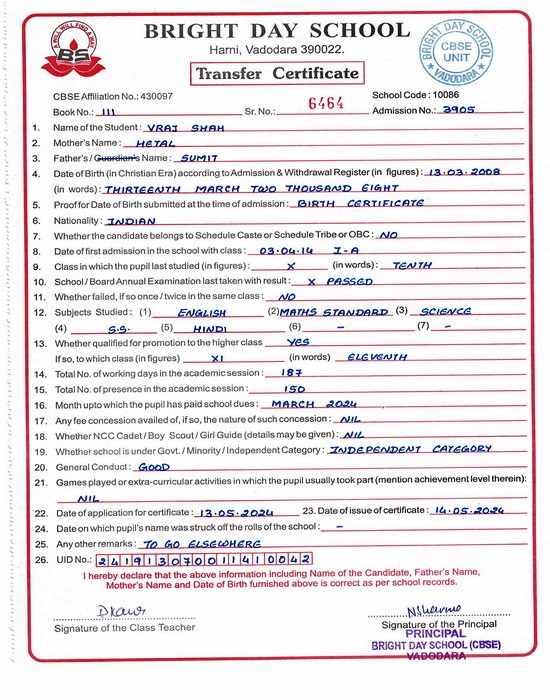 A WILL WILL FIND A WAY
BS
BRIGHT DAY SCHOOL
Harni, Vadodara 390022.
BRIGHT DAY SCHOOL
CBSE
UNIT
VADODARA
Transfer Certificate
CBSE Affiliation No.: 430097 School Code : 10086
Book No.: III Sr. No.: 6464 Admission No.: 3905
1. Name of the Student : VRAJ SHAH
2. Mother's Name : HETAL
3. Father's / Guardian's Name : SUMIT
4. Date of Birth (in Christian Era) according to Admission & Withdrawal Register (in figures) : 13.03.2008
(in words) : THIRTEENTH MARCH TWO THOUSAND EIGHT
5. Proof for Date of Birth submitted at the time of admission : BIRTH CERTIFICATE
6. Nationality : INDIAN
7. Whether the candidate belongs to Schedule Caste or Schedule Tribe or OBC : NO
8. Date of first admission in the school with class : 03.04.14 I-A
9. Class in which the pupil last studied (in figures) : X (in words) : TENTH
10. School / Board Annual Examination last taken with result : X PASSED
11. Whether failed, if so once / twice in the same class : NO
12. Subjects Studied : (1) ENGLISH (2) MATHS STANDARD (3) SCIENCE
(4) S.S. (5) HINDI (6) - (7) -
13. Whether qualified for promotion to the higher class YES
If so, to which class (in figures) XI (in words) ELEVENTH
14. Total No. of working days in the academic session : 187
15. Total No. of presence in the academic session : 150
16. Month upto which the pupil has paid school dues : MARCH 2024
17. Any fee concession availed of, if so, the nature of such concession : NIL
18. Whether NCC Cadet / Boy Scout / Girl Guide (details may be given) : NIL
19. Whether school is under Govt. / Minority / Independent Category : INDEPENDENT CATEGORY
20. General Conduct : GOOD
21. Games played or extra-curricular activities in which the pupil usually took part (mention achievement level therein):
NIL
22. Date of application for certificate : 13.05.2024 23. Date of issue of certificate : 14.05.2024
24. Date on which pupil's name was struck off the rolls of the school : -
25. Any other remarks : TO GO ELSEWHERE
26. UID No.: 241913070011410042
I hereby declare that the above information including Name of the Candidate, Father's Name,
Mother's Name and Date of Birth furnished above is correct as per school records.
Signature of the Class Teacher Signature of the Principal
PRINCIPAL
BRIGHT DAY SCHOOL (CBSE)
VADODARA